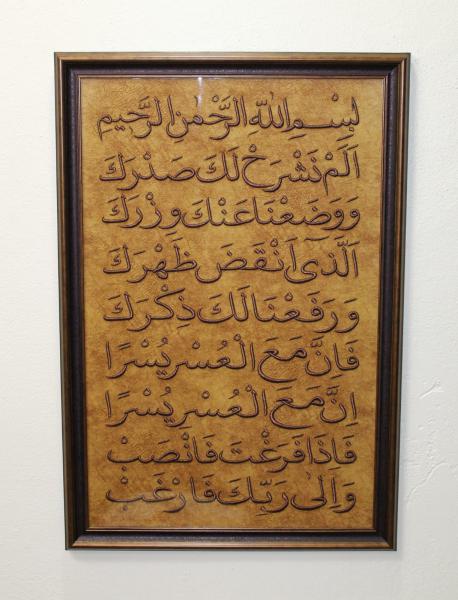 بِسْمِ اللهِ الرَّحْمٰنِ الرَّحِيمِ
اَلَمْ نَشْرَحْ لَكَ صَدْرَكَ
وَوَضَعْنَا عَنْكَ وِزْرَكَ
اَلَّذِىٓ اَنْقَضَ ظَهْرَكَ
وَرَفَعْنَا لَكَ ذِكْرَكَ
فَاِنَّ مَعَ الْعُسْرِ يُسْرًا
اِنَّ مَعَ الْعُسْرِ يُسْرًا
فَاِذَا فَرَغْتَ فَانْصَبْ
وَاِلٰى رَبِّكَ فَارْغَبْ